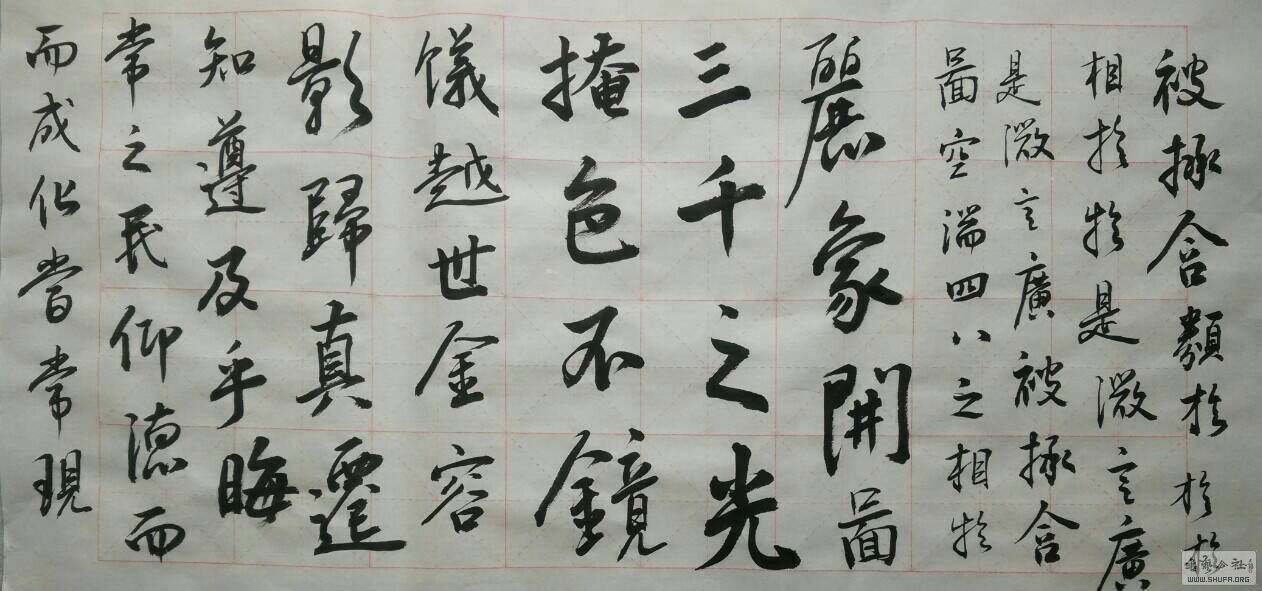 而成化當常現
常之民仰德而
知遵及乎晦
影歸真遷
儀越世金容
掩色不鏡
三千之光
麗象開圖
圖空端四八之相於
是微言廣被拯含
相於於是微言廣
被拯含類於於於
WWW.SHUFA.ORG